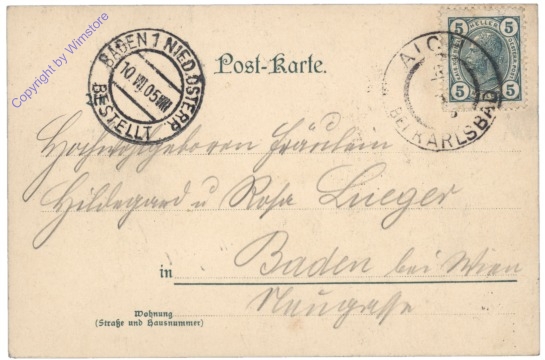 Copyright by Wimstore
BADEN 1 NIED. ÖSTERR.
10.VII.05
BESTELLT
Post-Karte.
5 HELLER 5
5 5
AICH
BEI KARLSBAD
Hochwohlgeboren Fräulein
Hildegard u Rosa Lueger
in Baden bei Wien
Neugasse
Wohnung
(Straße und Hausnummer)